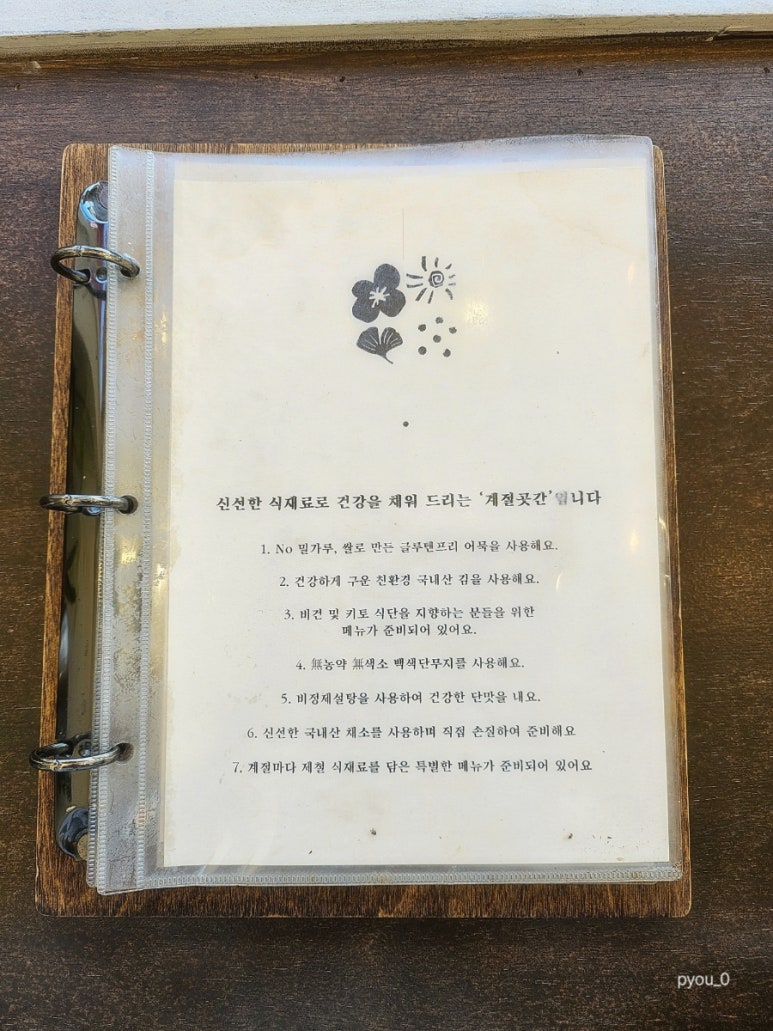 신선한 식재료로 건강을 채워 드리는 ‘계절곳간’입니다
1. No 밀가루, 쌀로 만든 글루텐프리 어묵을 사용해요.
2. 건강하게 구운 친환경 국내산 김을 사용해요.
3. 비건 및 키토 식단을 지향하는 분들을 위한
메뉴가 준비되어 있어요.
4. 無농약 無색소 백색단무지를 사용해요.
5. 비정제설탕을 사용하여 건강한 단맛을 내요.
6. 신선한 국내산 채소를 사용하며 직접 손질하여 준비해요
7. 계절마다 제철 식재료를 담은 특별한 메뉴가 준비되어 있어요
pyou_0